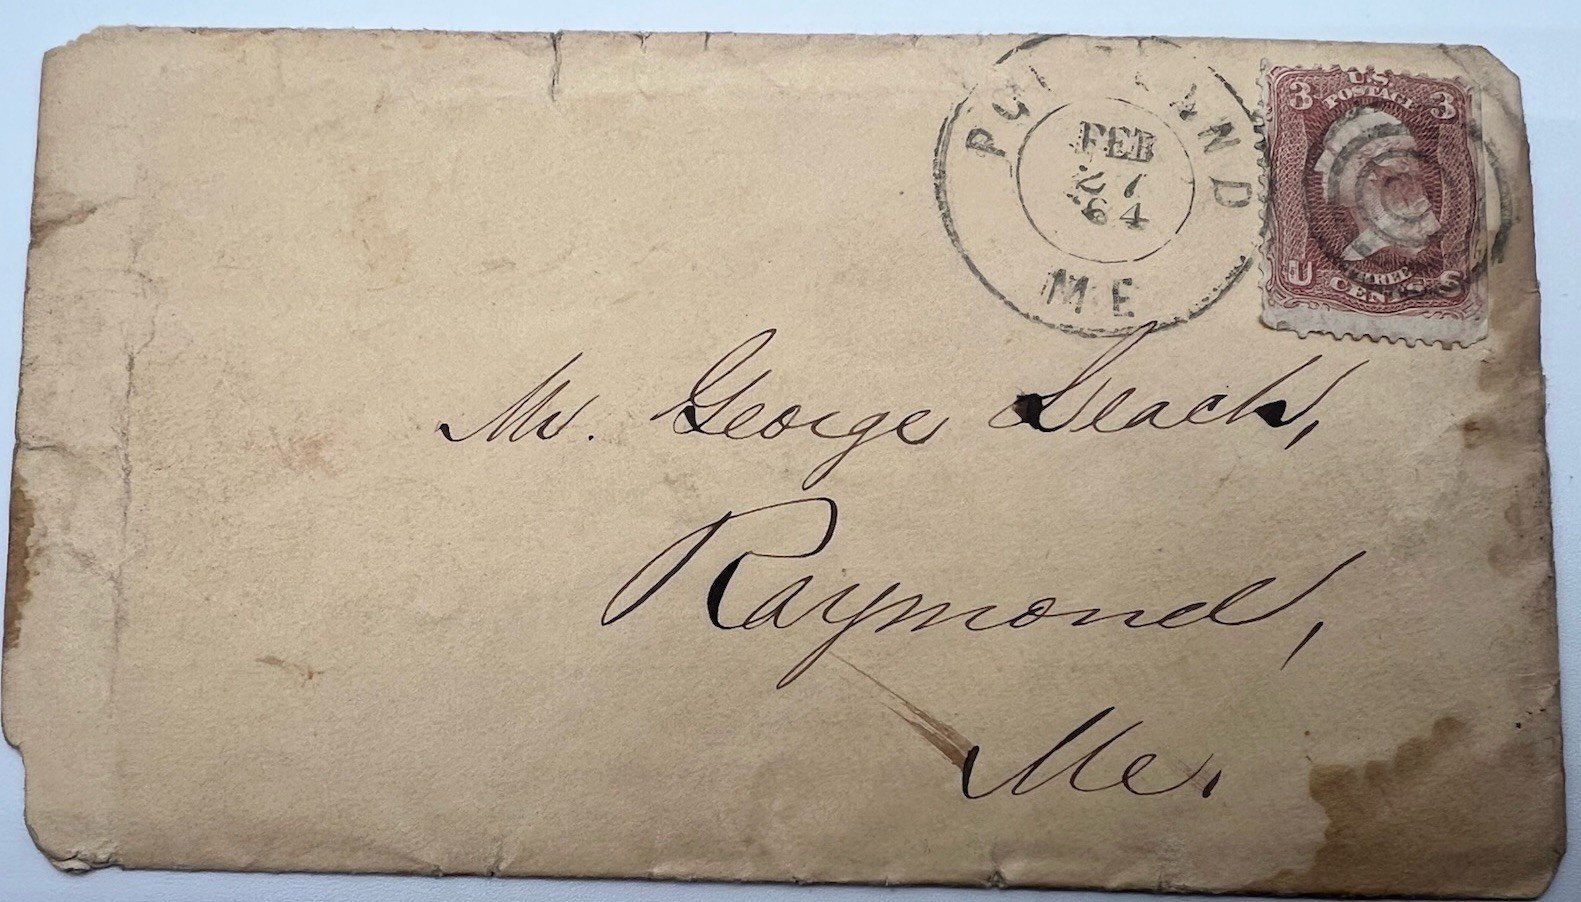 PORTLAND
FEB
27
64
ME
3 U.S. 3
POSTAGE
U THREE S
CENTS
Mr. George Leach,
Raymond,
Me.